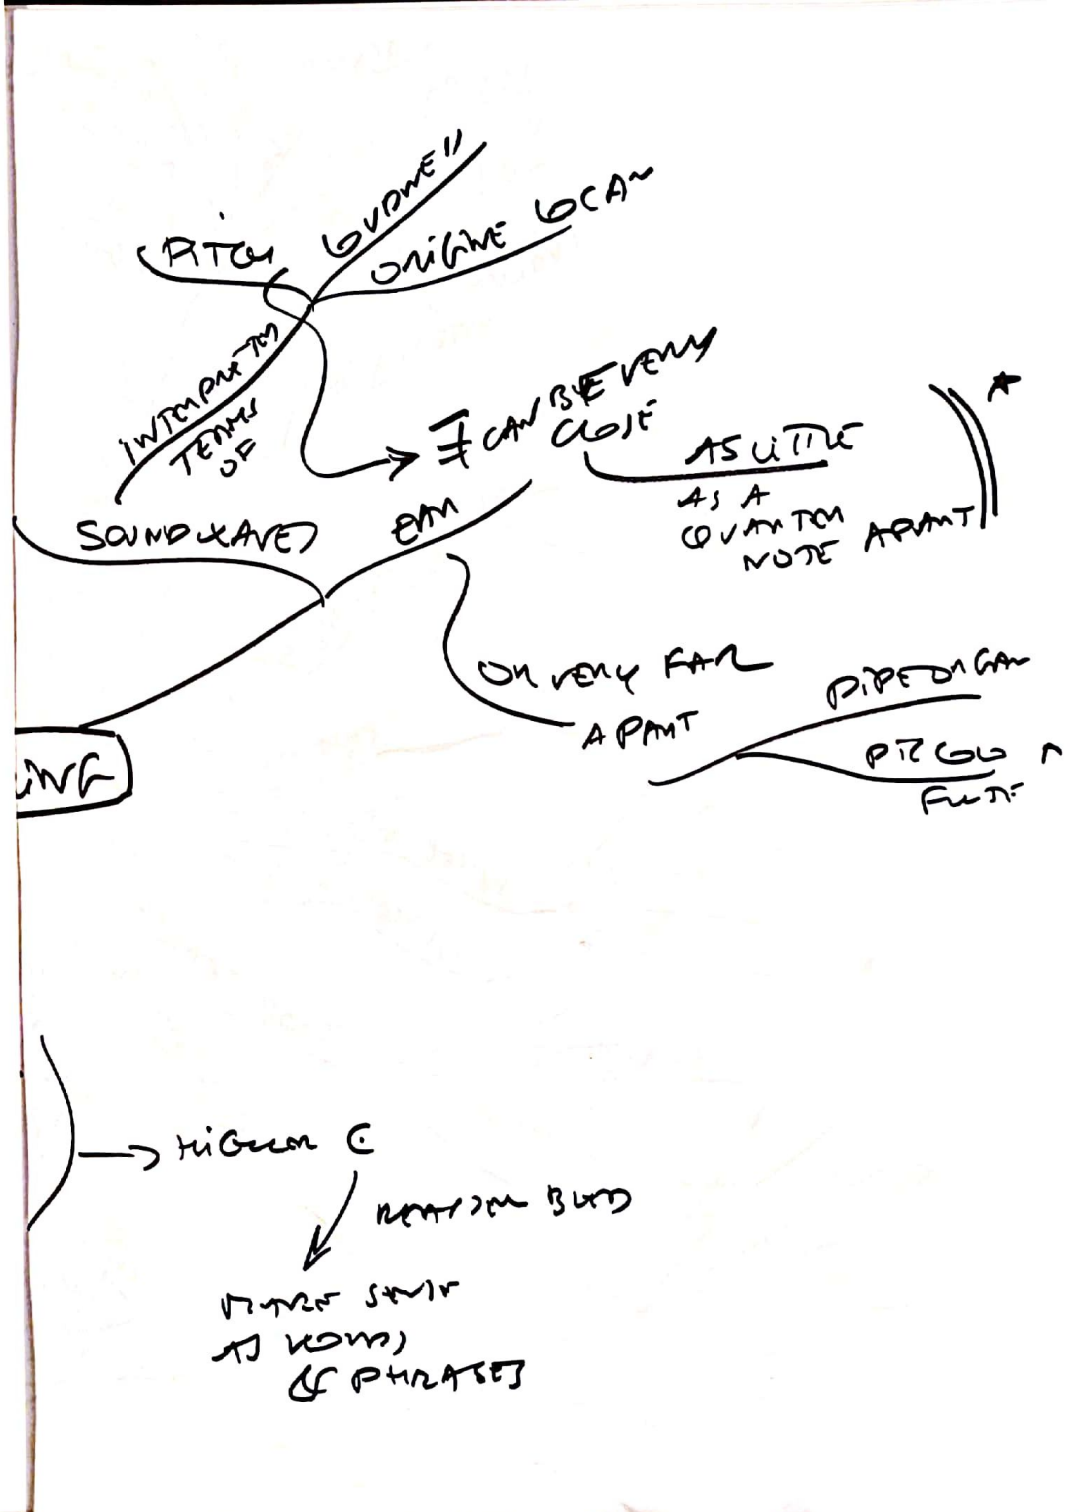 PITCH
LOUDNESS
ORIGINE LOCAN
INTERPRET IN
TERMS
OF
∃ CAN BE VERY
CLOSE
AS LITTLE
AS A
QUARTER
NOTE APART
SOUND WAVES
EAR
OR VERY FAR
APART
PIPE ORGAN
PICCOLO
FLUTE
ING
HIGHER C
MAKE SENSE
AS WORDS
& PHRASES